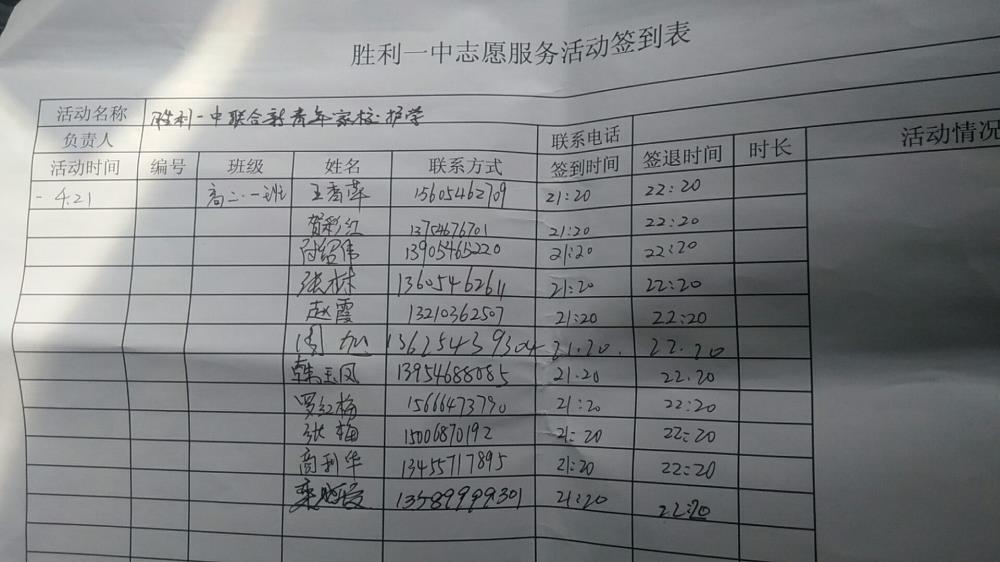 胜利一中志愿服务活动签到表
活动名称 胜利一中联合新青年家校护学
负责人 联系电话 活动情况
活动时间 编号 班级 姓名 联系方式 签到时间 签退时间 时长
4.21 高二.一班 王香萍 15605462709 21:20 22:20
贺彩红 13754676701 21:20 22:20
13905465220 21:20 22:20
张林 13605462611 21:20 22:20
赵霞 13210362507 21:20 22:20
周旭 13625439304 21.20. 22.20
韩玉凤 13954688085 21.20 22.20
罗红梅 15666473790 21:20 22:20
张梅 15006870192 21:20 22:20
商利华 13455717895 21:20 22:20
13589999301 21:20 22:20